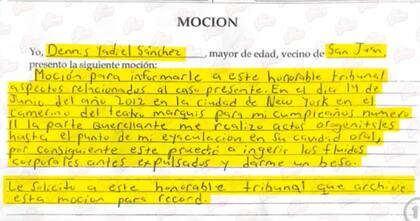 MOCION
Yo, Dennis Yadiel Sánchez, mayor de edad, vecino de San Juan
presento la siguiente moción:
Moción para informarle a este honorable tribunal
aspectos relacionados al caso presente. En el dia 14 de
Junio del año 2012 en la ciudad de New York en el
camerino del teatro marquis para mi cumpleaños numero
la parte querellante me realizo actos orogenitales
hasta el punto de mi eyaculacion en su cavidad oral,
por consiguiente este prucedio a ingerir los fluidos
corporales antes expulsados y darme un beso.
Le solicito a este honorable tribunal que archive
esta mocion para record.